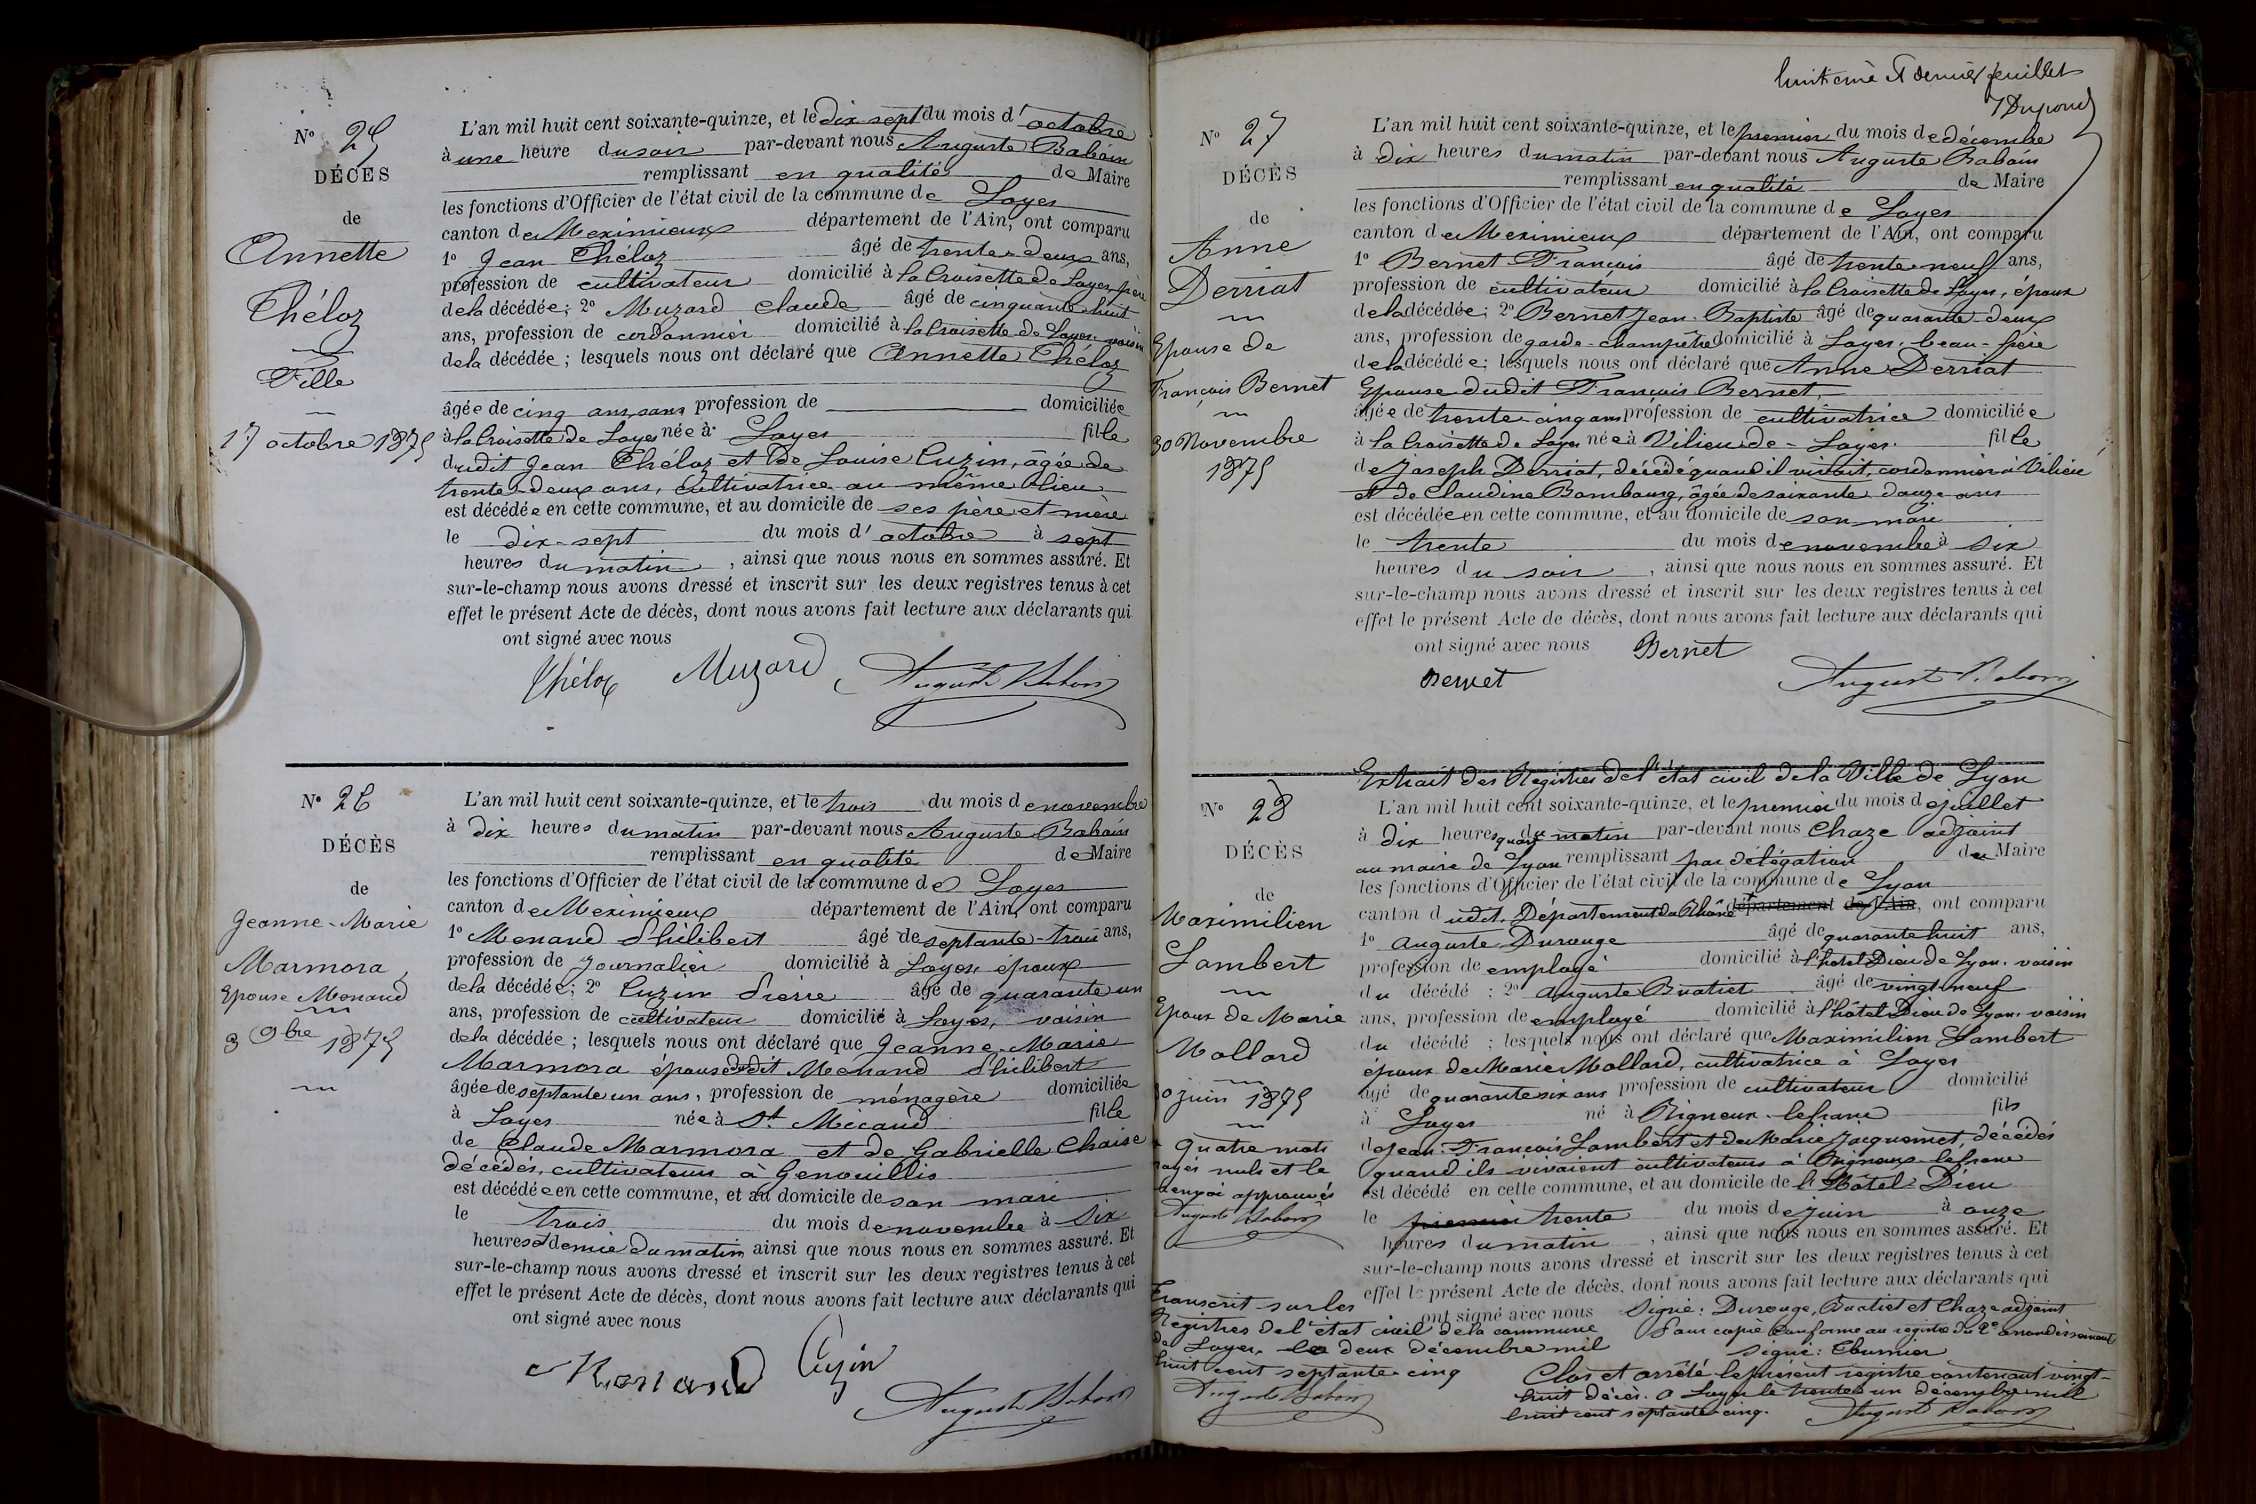 N° 25
DÉCÈS
de
Annette
Théloz
Fille
17 octobre 1875
L'an mil huit cent soixante-quinze, et le dix sept du mois d'octobre
à une heure du soir par-devant nous Auguste Baboin
remplissant en qualité de Maire
les fonctions d'Officier de l'état civil de la commune de Loyes
canton de Meximieux département de l'Ain, ont comparu
1° Jean Théloz âgé de trente-deux ans,
profession de cultivateur domicilié à la Croisette de Loyes, père
de la décédée; 2° Muzard Claude âgé de cinquante huit
ans, profession de cordonnier domicilié à la Croisette de Loyes voisin
de la décédée; lesquels nous ont déclaré que Annette Théloz
âgée de cinq ans, sans profession de domiciliée
à la Croisette de Loyes née à Loyes fille
dudit Jean Théloz et de Louise Cuzin, âgée de
trente-deux ans, cultivatrice au même lieu
est décédée en cette commune, et au domicile de ses père et mère
le dix-sept du mois d'octobre à sept
heures du matin, ainsi que nous nous en sommes assuré. Et
sur-le-champ nous avons dressé et inscrit sur les deux registres tenus à cet
effet le présent Acte de décès, dont nous avons fait lecture aux déclarants qui
ont signé avec nous
Théloz Muzard Auguste Baboin
N° 26
DÉCÈS
de
Jeanne-Marie
Marmora,
Epouse Menand
3 9bre 1875
L'an mil huit cent soixante-quinze, et le trois du mois de novembre
à dix heures du matin par-devant nous Auguste Baboin
remplissant en qualité de Maire
les fonctions d'Officier de l'état civil de la commune de Loyes
canton de Meximieux département de l'Ain, ont comparu
1° Menand Philibert âgé de septante-trois ans,
profession de journalier domicilié à Loyes, époux
de la décédée; 2° Cuzin Pierre âgé de quarante un
ans, profession de cultivateur domicilié à Loyes, voisin
de la décédée; lesquels nous ont déclaré que Jeanne-Marie
Marmora épouse dudit Menand Philibert
âgée de septante un ans, profession de ménagère domiciliée
à Loyes née à St. Micaud fille
de Claude Marmora et de Gabrielle Chaise
décédés, cultivateurs à Genouillis
est décédée en cette commune, et au domicile de son mari
le trois du mois de novembre à six
heures et demie du matin, ainsi que nous nous en sommes assuré. Et
sur-le-champ nous avons dressé et inscrit sur les deux registres tenus à cet
effet le présent Acte de décès, dont nous avons fait lecture aux déclarants qui
ont signé avec nous
Menand Cuzin
Auguste Baboin
huitième et dernier feuillet
Dupond
N° 27
DÉCÈS
de
Anne
Derriat
Epouse de
François Bernet
30 Novembre
1875
L'an mil huit cent soixante-quinze, et le premier du mois de décembre
à dix heures du matin par-devant nous Auguste Baboin
remplissant en qualité de Maire
les fonctions d'Officier de l'état civil de la commune de Loyes
canton de Meximieux département de l'Ain, ont comparu
1° Bernet François âgé de trente-neuf ans,
profession de cultivateur domicilié à la Croisette de Loyes, époux
de la décédée; 2° Bernet Jean-Baptiste âgé de quarante-deux
ans, profession de garde-champêtre domicilié à Loyes, beau-frère
de la décédée; lesquels nous ont déclaré que Anne Derriat
Epouse dudit François Bernet,
âgée de trente-cinq ans profession de cultivatrice domiciliée
à la Croisette de Loyes née à Vilieu de-Loyes. fille
de Joseph Derriat, décédé quand il vivait, cordonnier à Vilieu
et de Claudine Bombourg, âgée de soixante-douze ans
est décédée en cette commune, et au domicile de son mari
le trente du mois de novembre à six
heures du soir, ainsi que nous nous en sommes assuré. Et
sur-le-champ nous avons dressé et inscrit sur les deux registres tenus à cet
effet le présent Acte de décès, dont nous avons fait lecture aux déclarants qui
ont signé avec nous Bernet
Bernet Auguste Baboin
Extrait des Registres de l'état civil de la Ville de Lyon
N° 28
DÉCÈS
de
Maximilien
Lambert
Epoux de Marie
Mollard
30 juin 1875
quatre mots
rayés nuls et le
renvoi approuvés
Auguste Baboin
L'an mil huit cent soixante-quinze, et le premier du mois de juillet
à dix heures quart du matin par-devant nous Chaze adjoint
au maire de Lyon remplissant par délégation du Maire
les fonctions d'Officier de l'état civil de la commune de Lyon
canton dudit, Département du Rhône département de l'Ain, ont comparu
1° Auguste Durouge âgé de quarante huit ans,
profession de employé domicilié à l'hotel Dieu de Lyon. voisin
du décédé; 2° Auguste Buatiet âgé de vingt-neuf
ans, profession de employé domicilié à l'hôtel Dieu de Lyon voisin
du décédé; lesquels nous ont déclaré que Maximilien Lambert
époux de Marie Mollard, cultivatrice à Loyes
âgé de quarante six ans profession de cultivateur domicilié
à Loyes né à Rigneux-lefranc fils
de Jean-François Lambert et de Marie Jacquemet, décédés
quand ils vivaient cultivateurs à Rigneux-lefranc
est décédé en cette commune, et au domicile de l'Hôtel-Dieu
le premier trente du mois de juin à onze
heures du matin, ainsi que nous nous en sommes assuré. Et
sur-le-champ nous avons dressé et inscrit sur les deux registres tenus à cet
effet le présent Acte de décès, dont nous avons fait lecture aux déclarants qui
ont signé avec nous Signé: Durouge, Buatiet et Chaze adjoint
Pour copie conforme au registre du 2e arrondissement
signé: Chumier
Transcrit sur les
Registres de l'état civil de la commune
de Loyes, le deux décembre mil
huit cent septante-cinq
Auguste Baboin
Clos et arrêté le présent registre contenant vingt-
huit décès. A Loyes le trente un décembre mil
huit cent septante-cinq. Auguste Baboin